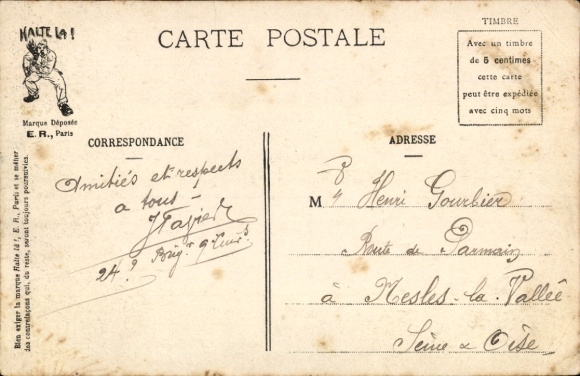 HALTE LÀ!
Marque Déposée
E. R., Paris
Bien exiger la marque Halte là!, E. R., Paris et se méfier
des contrefaçons qui, du reste, seront toujours poursuivies.
CARTE POSTALE
TIMBRE
Avec un timbre
de 5 centimes
cette carte
peut être expédiée
avec cinq mots
CORRESPONDANCE
Amitiés et respects
a tous
24e
ADRESSE
M Henri Gourbier
Route de Parmain
à Nesles-la-Vallée
Seine & Oise